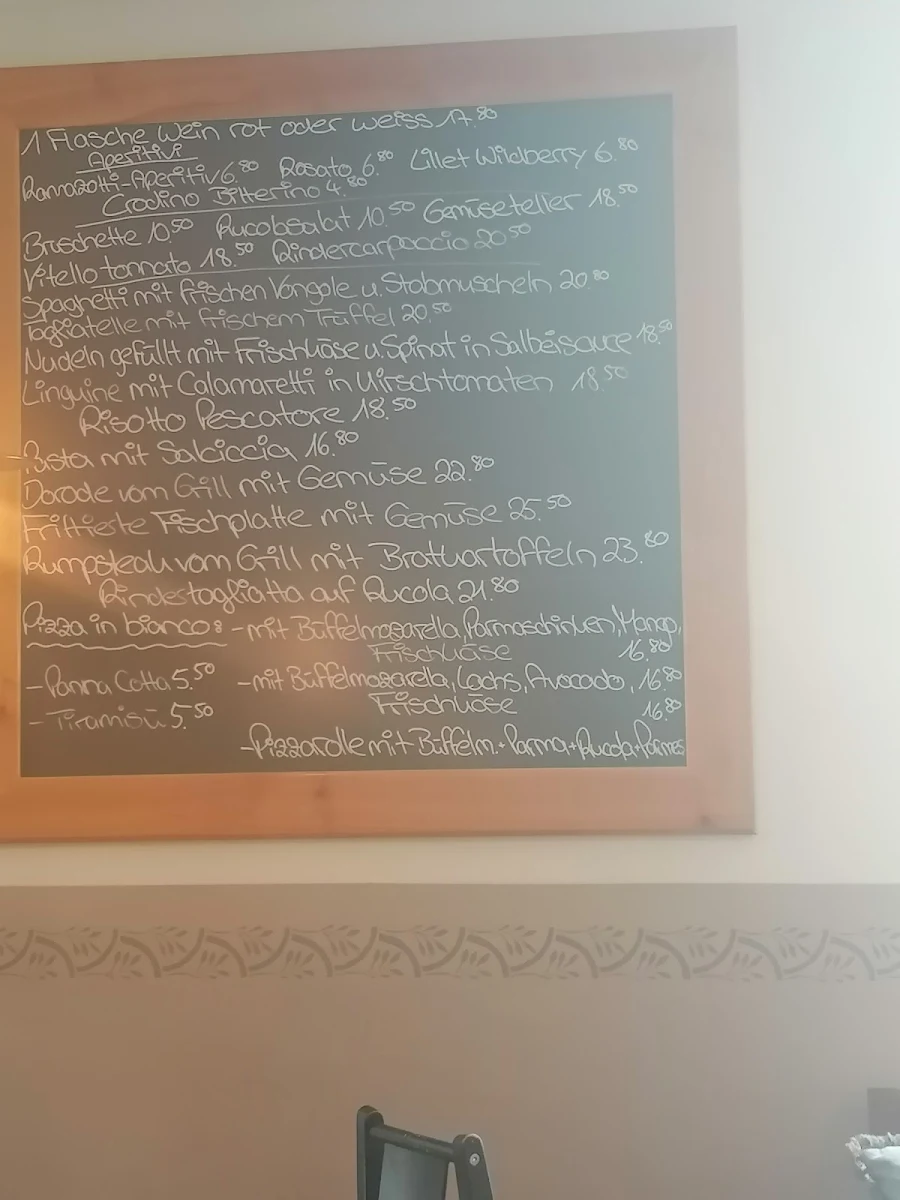 1 Flasche Wein rot oder weiss 17.80
Aperitivi
Ramazotti-Aperitiv 6.80 Rosato 6.80 Lillet Wildberry 6.80
Crodino Bitterino 4.80
Bruschette 10.50 Rucolasalat 10.50 Gemüseteller 18.50
Vitello tonnato 18.50 Rindercarpaccio 20.50
Spaghetti mit frischen Vongole u. Stabmuscheln 20.80
Tagliatelle mit frischem Trüffel 20.50
Nudeln gefüllt mit Frischkäse u. Spinat in Salbeisauce 18.50
Linguine mit Calamaretti in Kirschtomaten 18.50
Risotto Pescatore 18.50
-Pasta mit Salciccia 16.80
Dorade vom Grill mit Gemüse 22.80
Frittierte Fischplatte mit Gemüse 25.50
Rumpsteak vom Grill mit Bratkartoffeln 23.80
Rindestagliatta auf Rucola 21.80
Pizza in bianco: -mit Büffelmozarella, Parmaschinken, Mango,
Frischkäse 16.80
-Panna Cotta 5.50 -mit Büffelmozarella, Lachs, Avocado, 16.80
-Tiramisu 5.50 Frischkäse 16.80
-Pizzarolle mit Büffelm.+Parma+Rucola+Parmes